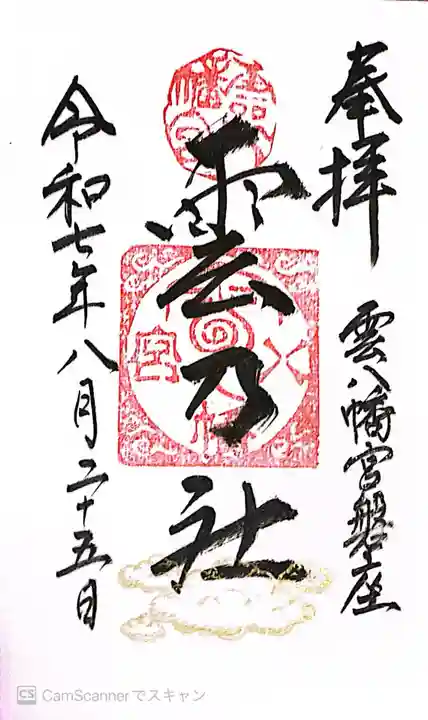 奉拝
雲八幡宮磐座
雲乃社
令和七年八月二十五日
CS CamScannerでスキャン